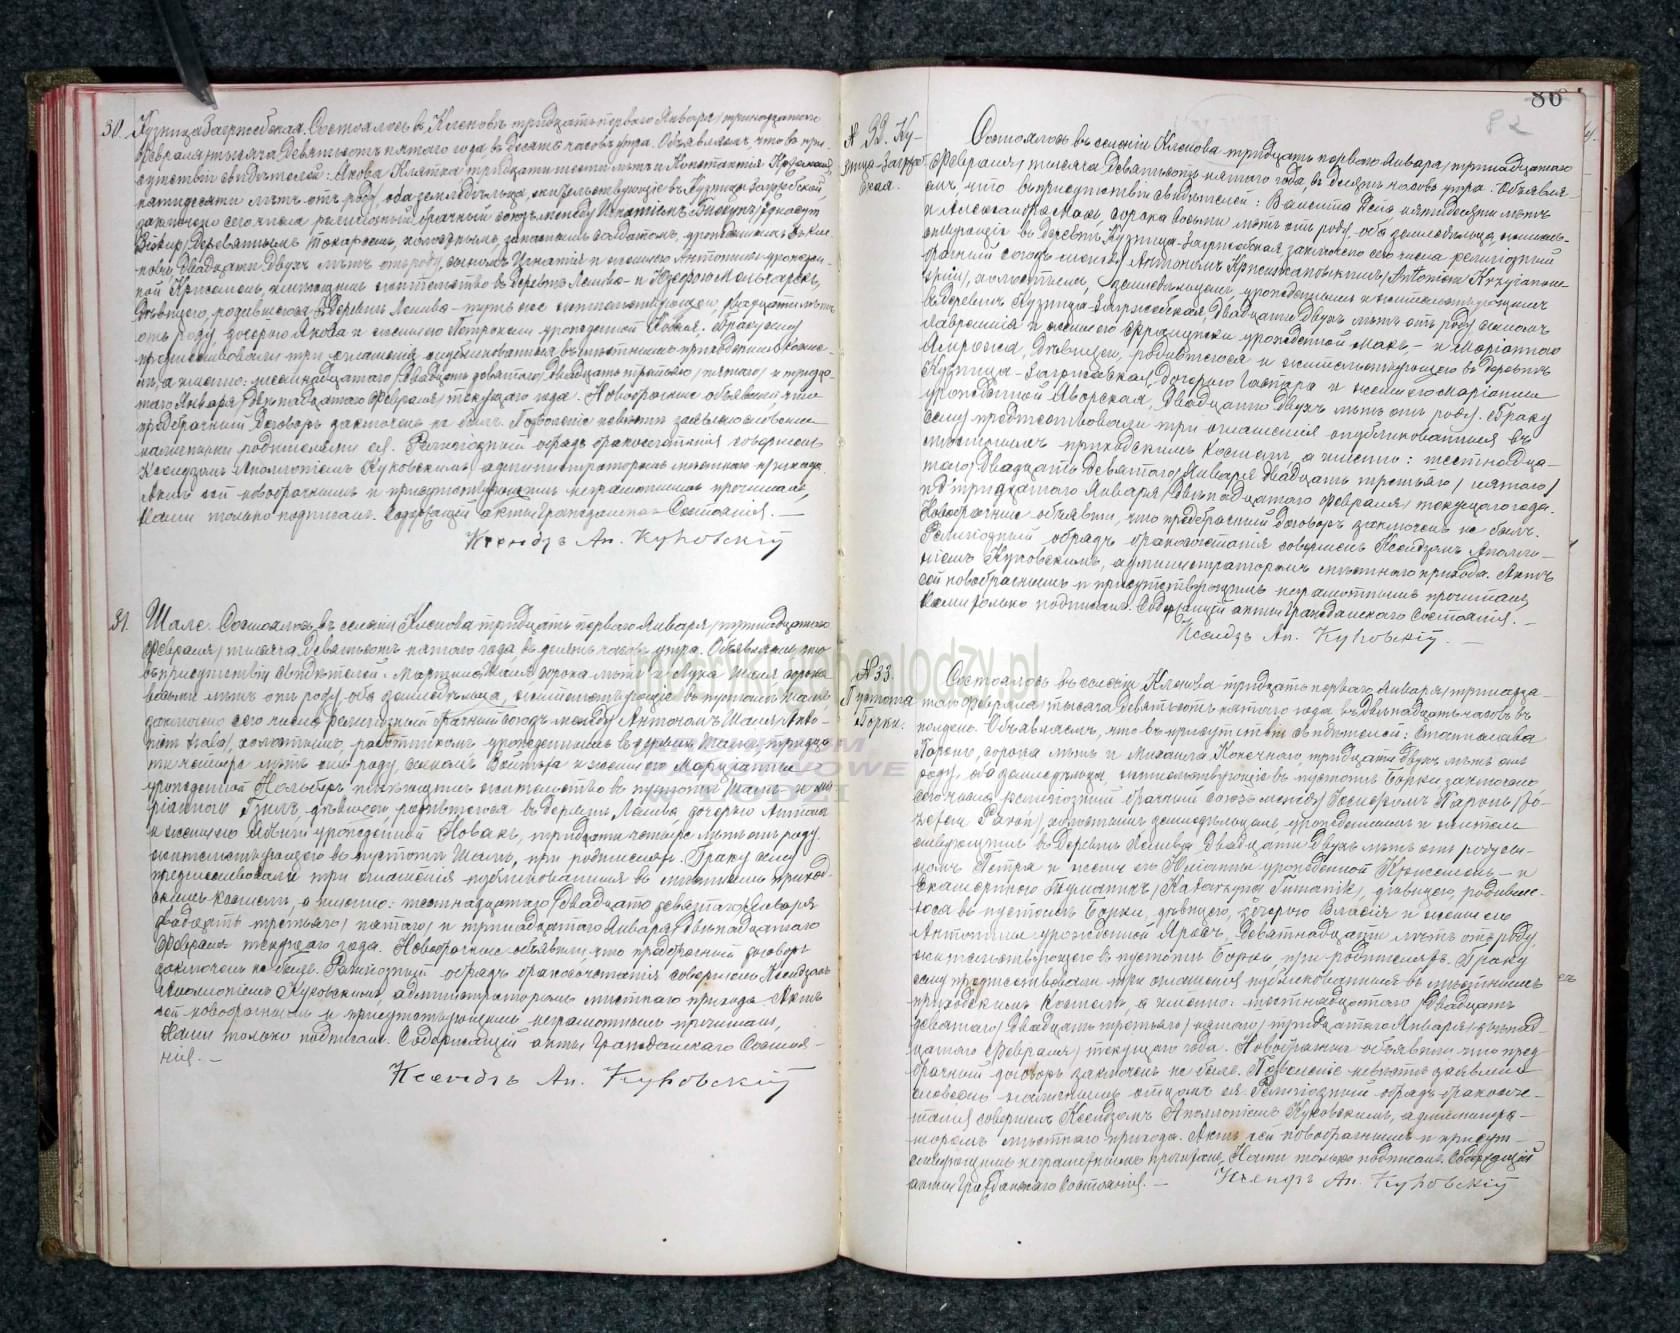 30. Кузница Загржебская. Состоялось въ Кленовѣ тридцать перваго Января /тринадцатаго
Февраля/ тысяча девятьсотъ пятаго года, въ десять часовъ утра. Объявляемъ, что въ при-
сутствіи свидѣтелей: Якова Клятка тридцати шести лѣтъ и Константія
пятидесяти лѣтъ отъ роду, оба земледѣльца, жительствующіе въ Кузницѣ Загржебской,
заключенъ сего числа религіозный брачный союзъ между Игнатіемъ
деревяннымъ токаремъ, холостымъ, запаснымъ солдатомъ, урожденнымъ въ Кле-
новѣ, двадцати двухъ лѣтъ отъ роду, сыномъ Игнатія и жены его Антонины урожден-
ной жительство въ деревнѣ Лесиво и Юзефою
дѣвицею, родившеюся въ деревнѣ Лесиво тутъ же жительствующею, двадцати лѣтъ
отъ роду, дочерью Якова и жены его Петронели урожденной Новакъ. Браку сему
предшествовали три оглашенія опубликованныя въ мѣстномъ приходскомъ Косте-
лѣ, а именно: шестнадцатаго /двадцать девятаго/ двадцать третьяго /пятаго/ и тридца-
таго Января /двѣнадцатаго Февраля/ текущаго года. Новобрачные объявили, что
предбрачный договоръ заключенъ не былъ. Позволеніе невѣстѣ заявлено словесно
наличными родителями ея. Религіозный обрядъ бракосочетанія совершенъ
Ксендзомъ Аполлоніемъ Куковскимъ, администраторомъ мѣстнаго прихода.
Актъ сей новобрачнымъ и присутствующимъ неграмотнымъ прочитанъ,
Нами только подписанъ. Содержащій акты Гражданскаго Состоянія. —
Ксендзъ Ап. Куковскій
31. Шале. Состоялось въ селеніи Кленова тридцать перваго Января /тринадцатаго
Февраля/ тысяча девятьсотъ пятаго года, въ десять часовъ утра. Объявляемъ, что
въ присутствіи свидѣтелей: Мартина Шаля сорока лѣтъ и Лука Шаля сорока
восьми лѣтъ отъ роду, оба земледѣльца, жительствующіе въ пустоши Шале
заключенъ сего числа религіозный брачный союзъ между Антономъ Шаля /Anto-
nim Szala/, холостымъ, работникомъ урожденнымъ въ деревнѣ Шале, тридца-
ти четыре лѣтъ отъ роду, сыномъ Войтѣха и жены его Маріанны
урожденной имѣющимъ жительство въ пустоши Шале — и Ма-
ріанною дѣвицею, родившеюся въ деревнѣ Лесива, дочерью Антона
и жены его урожденной Новакъ, тридцати четыре лѣтъ отъ роду
жительствующею въ пустоши Шале, при родителяхъ. Браку сему
предшествовали три оглашенія публикованныя въ мѣстномъ приход-
скомъ Костелѣ, а именно: шестнадцатаго /двадцать девятаго/ Января
двадцать третьяго /пятаго/ и тридцатаго Января /двѣнадцатаго
Февраля/ текущаго года. Новобрачные объявили, что предбрачный договоръ
заключенъ не былъ. Религіозный обрядъ бракосочетанія совершенъ Ксендзомъ
Аполлоніемъ Куковскимъ, администраторомъ мѣстнаго прихода. Актъ
сей новобрачнымъ и присутствующимъ неграмотнымъ прочитанъ,
Нами только подписанъ. Содержащій акты Гражданскаго Состоя-
нія. —
Ксендзъ Ап. Куковскій
86
82
№ 32. Ку-
зница-Загржеб
ская.
Состоялось въ селеніи Кленова тридцать перваго Января /тринадцатаго
Февраля/ тысяча девятьсотъ пятаго года, въ десять часовъ утра. Объявля-
емъ, что въ присутствіи свидѣтелей: Валента пятидесяти лѣтъ
и Александра Макъ, сорока восьми лѣтъ отъ роду, оба земледѣльца, житель-
ствующіе въ деревнѣ Кузница-Загржебская, заключенъ сего числа религіозный
брачный союзъ между Антономъ Кржижановскимъ /Antonim Krzyżanow-
skim/, холостымъ, земледѣльцемъ, урожденнымъ и жительствующимъ
въ деревнѣ Кузница-Загржебская, двадцати двухъ лѣтъ отъ роду, сыномъ
Лаврентія и жены его Францишки урожденной Макъ, — и Маріанною
дѣвицею, родившеюся и жительствующею въ деревнѣ
Кузница-Загржебская, дочерью Гаспара и жены его Маріанны
урожденной Яворская, двадцати двухъ лѣтъ отъ роду. Браку
сему предшествовали три оглашенія опубликованныя въ
мѣстномъ приходскомъ Костелѣ, а именно: шестнадца-
таго /двадцать девятаго/ Января двадцать третьяго /пятаго/
и тридцатаго Января /двѣнадцатаго Февраля/ текущаго года.
Новобрачные объявили, что предбрачный договоръ заключенъ не былъ.
Религіозный обрядъ бракосочетанія совершенъ Ксендзомъ Аполло-
ніемъ Куковскимъ, администраторомъ мѣстнаго прихода. Актъ
сей новобрачнымъ и присутствующимъ неграмотнымъ прочитанъ,
Нами только подписанъ. Содержащій акты Гражданскаго Состоянія. —
Ксендзъ Ап. Куковскій. —
№ 33.
Пустота
Борки.
Состоялось въ селеніи Кленова тридцать перваго Января /тринадца-
таго Февраля/ тысяча девятьсотъ пятаго года въ двѣнадцать часовъ въ
полдень. Объявляемъ, что въ присутствіи свидѣтелей: Станислава
Паронь, сорока лѣтъ и Михаила Конечнаго, тридцати двухъ лѣтъ отъ
роду, оба земледѣльцы, жительствующіе въ пустотѣ Борки, заключенъ
сего числа религіозный брачный союзъ между Іосифомъ Паронь /Jó-
zefem Paroń/, холостымъ земледѣльцемъ, урожденнымъ и житель-
ствующимъ въ деревнѣ Лесива, двадцати двухъ лѣтъ отъ роду, сы-
номъ Петра и жены его Юліанны урожденной — и
Екатериною Туманикъ /Katarzyną Tumanik/, дѣвицею, родивше-
юся въ пустошѣ Борки, дѣвицею, дочерью Власія и жены его
Антонины урожденной девятнадцати лѣтъ отъ роду
жительствующею въ пустотѣ Борки, при родителяхъ. Браку
сему предшествовали три оглашенія публикованныя въ мѣстномъ
приходскомъ Костелѣ, а именно: шестнадцатаго /двадцать
девятаго/ двадцать третьяго /пятаго/ тридцатаго Января /двѣнад-
цатаго Февраля/ текущаго года. Новобрачные объявили, что пред-
брачный договоръ заключенъ не былъ. Позволеніе невѣстѣ заявлено
словесно наличнымъ отцомъ ея. Религіозный обрядъ бракосоче-
танія совершенъ Ксендзомъ Аполлоніемъ Куковскимъ, администра-
торомъ мѣстнаго прихода. Актъ сей новобрачнымъ и присут-
ствующимъ неграмотнымъ прочитанъ, Нами только подписанъ. Содержащій
акты Гражданскаго Состоянія. — Ксендзъ Ап. Куковскій
metryki.genbaza.lodzy.pl
ARCHIWUM
PAŃSTWOWE
W ŁODZI